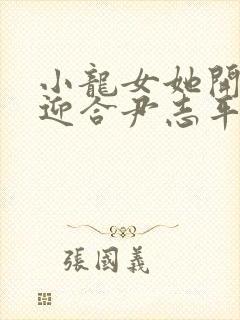 小龍女她開
迎合尹志平
張國義